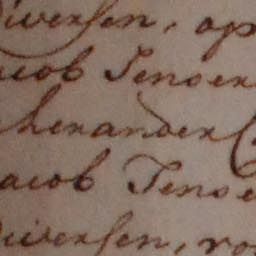 Diversen, op
acob Tenser
lexander C
acob Tense
Diversen, vo